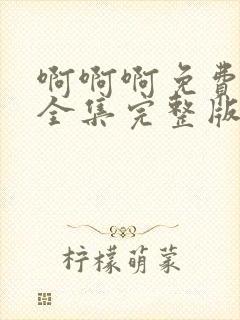 啊啊啊免费
全集完整版
柠檬萌菜